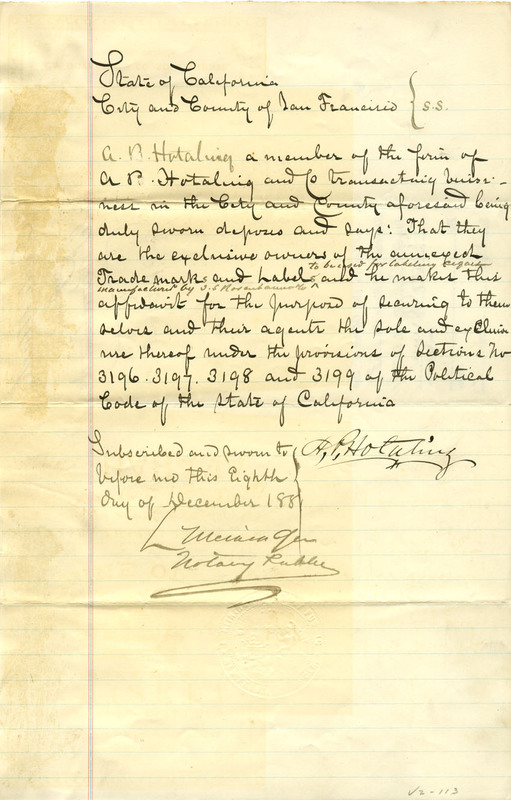 State of California
City and County of San Francisco } S.S.
A. P. Hotaling a member of the firm of
A. P. Hotaling and Co transacting busi-
ness in the City and County aforesaid being
duly sworn deposes and says: That they
are the exclusive owners of the annexed
to be used for labeling cigars
Trade mark and Label and he makes this
manufactured by S. S.
affidavit for the purpose of securing to them
selves and their agents the sole and exclusive
use thereof under the provisions of Sections No
3196. 3197. 3198 and 3199 of the Political
Code of the State of California
Subscribed and sworn to
before me this Eighth
day of December 188
A. P. Hotaling
Notary Public
V2-113